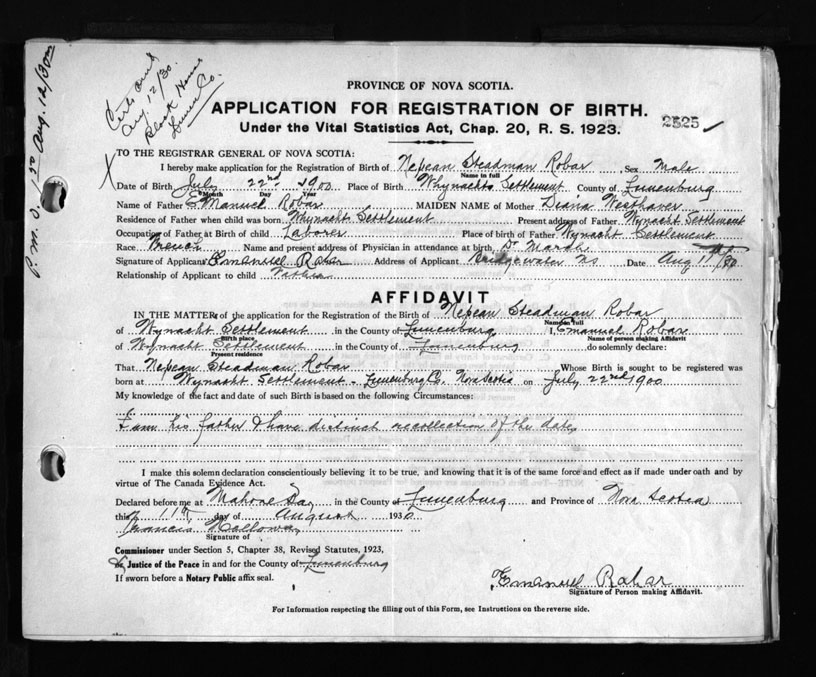 Certs sent
Aug. 12/30.
Block House
Lunen Co.
P.M.O. 1.50 Aug. 12/30
PROVINCE OF NOVA SCOTIA.
APPLICATION FOR REGISTRATION OF BIRTH.
Under the Vital Statistics Act, Chap. 20, R. S. 1923.
2525
TO THE REGISTRAR GENERAL OF NOVA SCOTIA:
I hereby make application for Registration of Birth of Nepean Steadman Robar Sex Male
Name in full
Date of Birth July 22nd 1900 Place of Birth Whynachts Settlement County of Lunenburg
Month Day Year
Name of Father Emanuel Robar MAIDEN NAME of Mother Diana Westhaver
Residence of Father when child was born Whynacht Settlement Present address of Father Wynacht Settlement
Occupation of Father at Birth of child Laborer Place of birth of Father Wynacht Settlement
Race French Name and present address of Physician in attendance at birth Dr Marsh
Signature of Applicant Emanuel Robar Address of Applicant Bridgewater NS Date Aug 11th/30
Relationship of Applicant to child Father
AFFIDAVIT
IN THE MATTER of the application for the Registration of the Birth of Nepean Steadman Robar
Name in full
of Wynacht Settlement in the County of Lunenburg I, Emanuel Robar
Birth place Name of person making Affidavit
of Wynacht Settlement in the County of Lunenburg do solemnly declare:
Present residence
That Nepean Steadman Robar Whose Birth is sought to be registered was
born at Wynacht Settlement - Lunenburg Co, Nova Scotia on July 22nd 1900
My knowledge of the fact and date of such Birth is based on the following Circumstances:
I am his father & have distinct recollection of the date
I make this solemn declaration conscientiously believing it to be true, and knowing that it is of the same force and effect as if made under oath and by
virtue of The Canada Evidence Act.
Declared before me at Mahone Bay in the County of Lunenburg and Province of Nova Scotia
this 11th day of August 1930
Signature of
Commissioner under Section 5, Chapter 38, Revised Statutes, 1923,
or Justice of the Peace in and for the County of Lunenburg
If sworn before a Notary Public affix seal.
Emanuel Robar
Signature of Person making Affidavit.
For Information respecting the filling out of this Form, see Instructions on the reverse side.